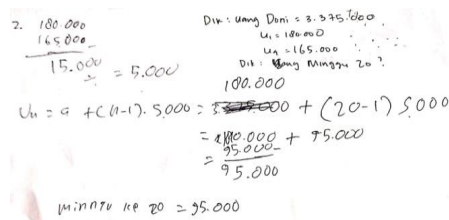 2. 180.000
165.000
15.000
= 5.000
Dik : Uang Doni = 3.375.000
U₁ = 180.000
U₄ = 165.000
Dit : Uang Minggu 20 ?
180.000
Un = a + (n-1). 5.000 = + (20-1) 5.000
= 180.000 + 95.000
= 95.000-
95.000
minggu ke 20 = 95.000